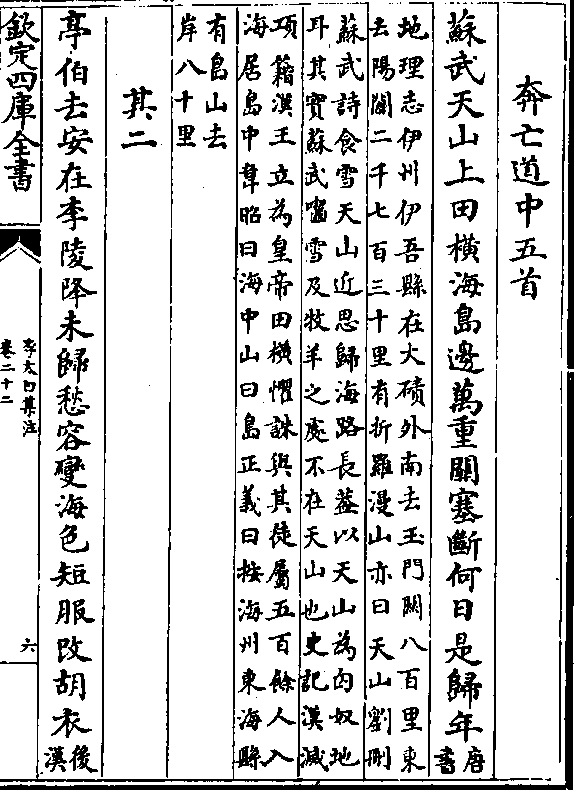 奔亡道中五首
蘇武天山上田橫海島邊萬重關塞斷何日是歸年唐書
地理志伊州伊吾縣在大磧外南去玉門關八百里東
去陽關二千七百三十里有折羅漫山亦曰天山劉刪
蘇武詩食雪天山近思歸海路長蓋以天山為匈奴地
耳其實蘇武嚙雪及牧羊之處不在天山也史記漢滅
項籍漢王立為皇帝田橫懼誅與其徒屬五百餘人入
海居島中韋昭曰海中山曰島正義曰按海州東海縣
有島山去
岸八十里
其二
亭伯去安在李陵降未歸愁容變海色短服改胡衣後漢
欽定四庫全書
李太白集注
卷二十二
六